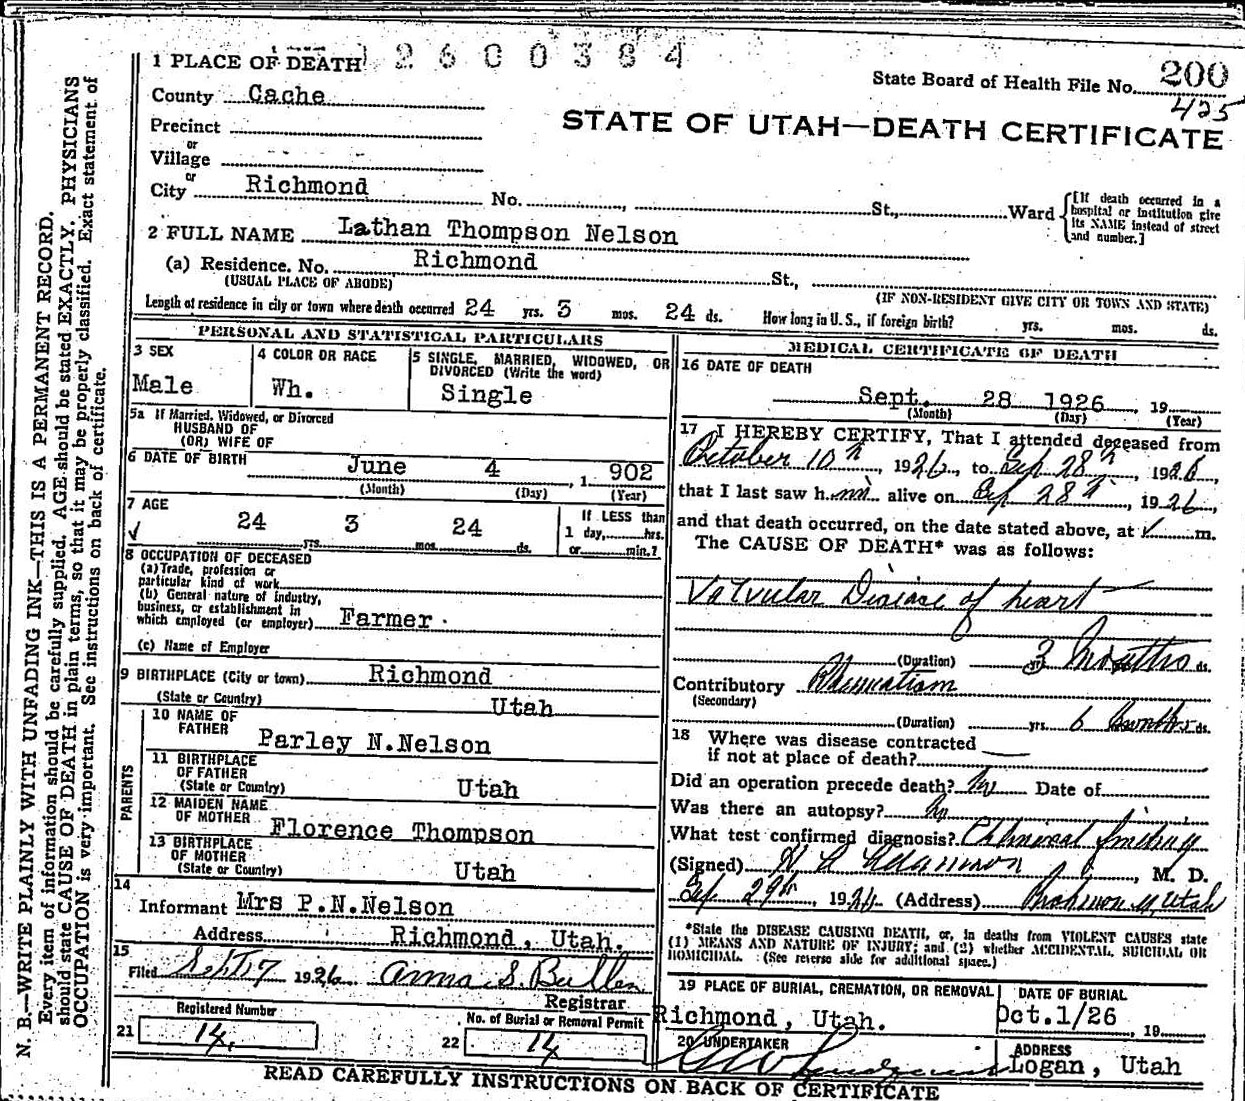 1 PLACE OF DEATH 2600384
State Board of Health File No. 200
425
County Cache
STATE OF UTAH—DEATH CERTIFICATE
Precinct
or
Village
or
City Richmond No. St., Ward
[If death occurred in a hospital or institution give its NAME instead of street and number.]
2 FULL NAME Lathan Thompson Nelson
(a) Residence. No. Richmond St.,
(USUAL PLACE OF ABODE) (IF NON-RESIDENT GIVE CITY OR TOWN AND STATE)
Length of residence in city or town where death occurred 24 yrs. 3 mos. 24 ds. How long in U.S., if foreign birth? yrs. mos. ds.
PERSONAL AND STATISTICAL PARTICULARS
3 SEX
Male
4 COLOR OR RACE
Wh.
5 SINGLE, MARRIED, WIDOWED, OR
DIVORCED (Write the word)
Single
5a If Married, Widowed, or Divorced
HUSBAND OF
(OR) WIFE OF
6 DATE OF BIRTH June 4, 1902
(Month) (Day) (Year)
7 AGE
24 yrs. 3 mos. 24 ds.
If LESS than
1 day, hrs.
or min.?
8 OCCUPATION OF DECEASED
(a) Trade, profession or
particular kind of work
(b) General nature of industry,
business, or establishment in
which employed (or employer) Farmer.
(c) Name of Employer
9 BIRTHPLACE (City or town) Richmond
(State or Country) Utah
PARENTS
10 NAME OF
FATHER Parley N.Nelson
11 BIRTHPLACE
OF FATHER
(State or Country) Utah
12 MAIDEN NAME
OF MOTHER Florence Thompson
13 BIRTHPLACE
OF MOTHER
(State or Country) Utah
14
Informant Mrs P.N.Nelson
Address Richmond, Utah.
15
Filed 1926 Anna S. Bullen
Registrar
Registered Number
21 14.
No. of Burial or Removal Permit
22 14
MEDICAL CERTIFICATE OF DEATH
16 DATE OF DEATH
Sept. 28 1926, 19
(Month) (Day) (Year)
17 I HEREBY CERTIFY, That I attended deceased from
October 10th, 1926, to Sep 28th, 1926,
that I last saw him alive on Sep 28th, 1926,
and that death occurred, on the date stated above, at m.
The CAUSE OF DEATH* was as follows:
Valvular Disease of heart
(Duration) yrs. 3 Months ds.
Contributory Rheumatism
(Secondary)
(Duration) yrs. 6 months ds.
18 Where was disease contracted
if not at place of death?
Did an operation precede death? No Date of
Was there an autopsy? No
What test confirmed diagnosis?
(Signed) Adamson, M. D.
Sep 29th, 1926 (Address) Richmond, Utah
*State the DISEASE CAUSING DEATH, or, in deaths from VIOLENT CAUSES state
(1) MEANS AND NATURE OF INJURY; and (2) whether ACCIDENTAL, SUICIDAL OR
HOMICIDAL. (See reverse side for additional space.)
19 PLACE OF BURIAL, CREMATION, OR REMOVAL
Richmond, Utah.
DATE OF BURIAL
Oct.1/26, 19
20 UNDERTAKER
ADDRESS
Logan, Utah
READ CAREFULLY INSTRUCTIONS ON BACK OF CERTIFICATE
N. B.—WRITE PLAINLY WITH UNFADING INK—THIS IS A PERMANENT RECORD.
Every item of information should be carefully supplied. AGE should be stated EXACTLY. PHYSICIANS
should state CAUSE OF DEATH in plain terms, so that it may be properly classified. Exact statement of
OCCUPATION is very important. See instructions on back of certificate.